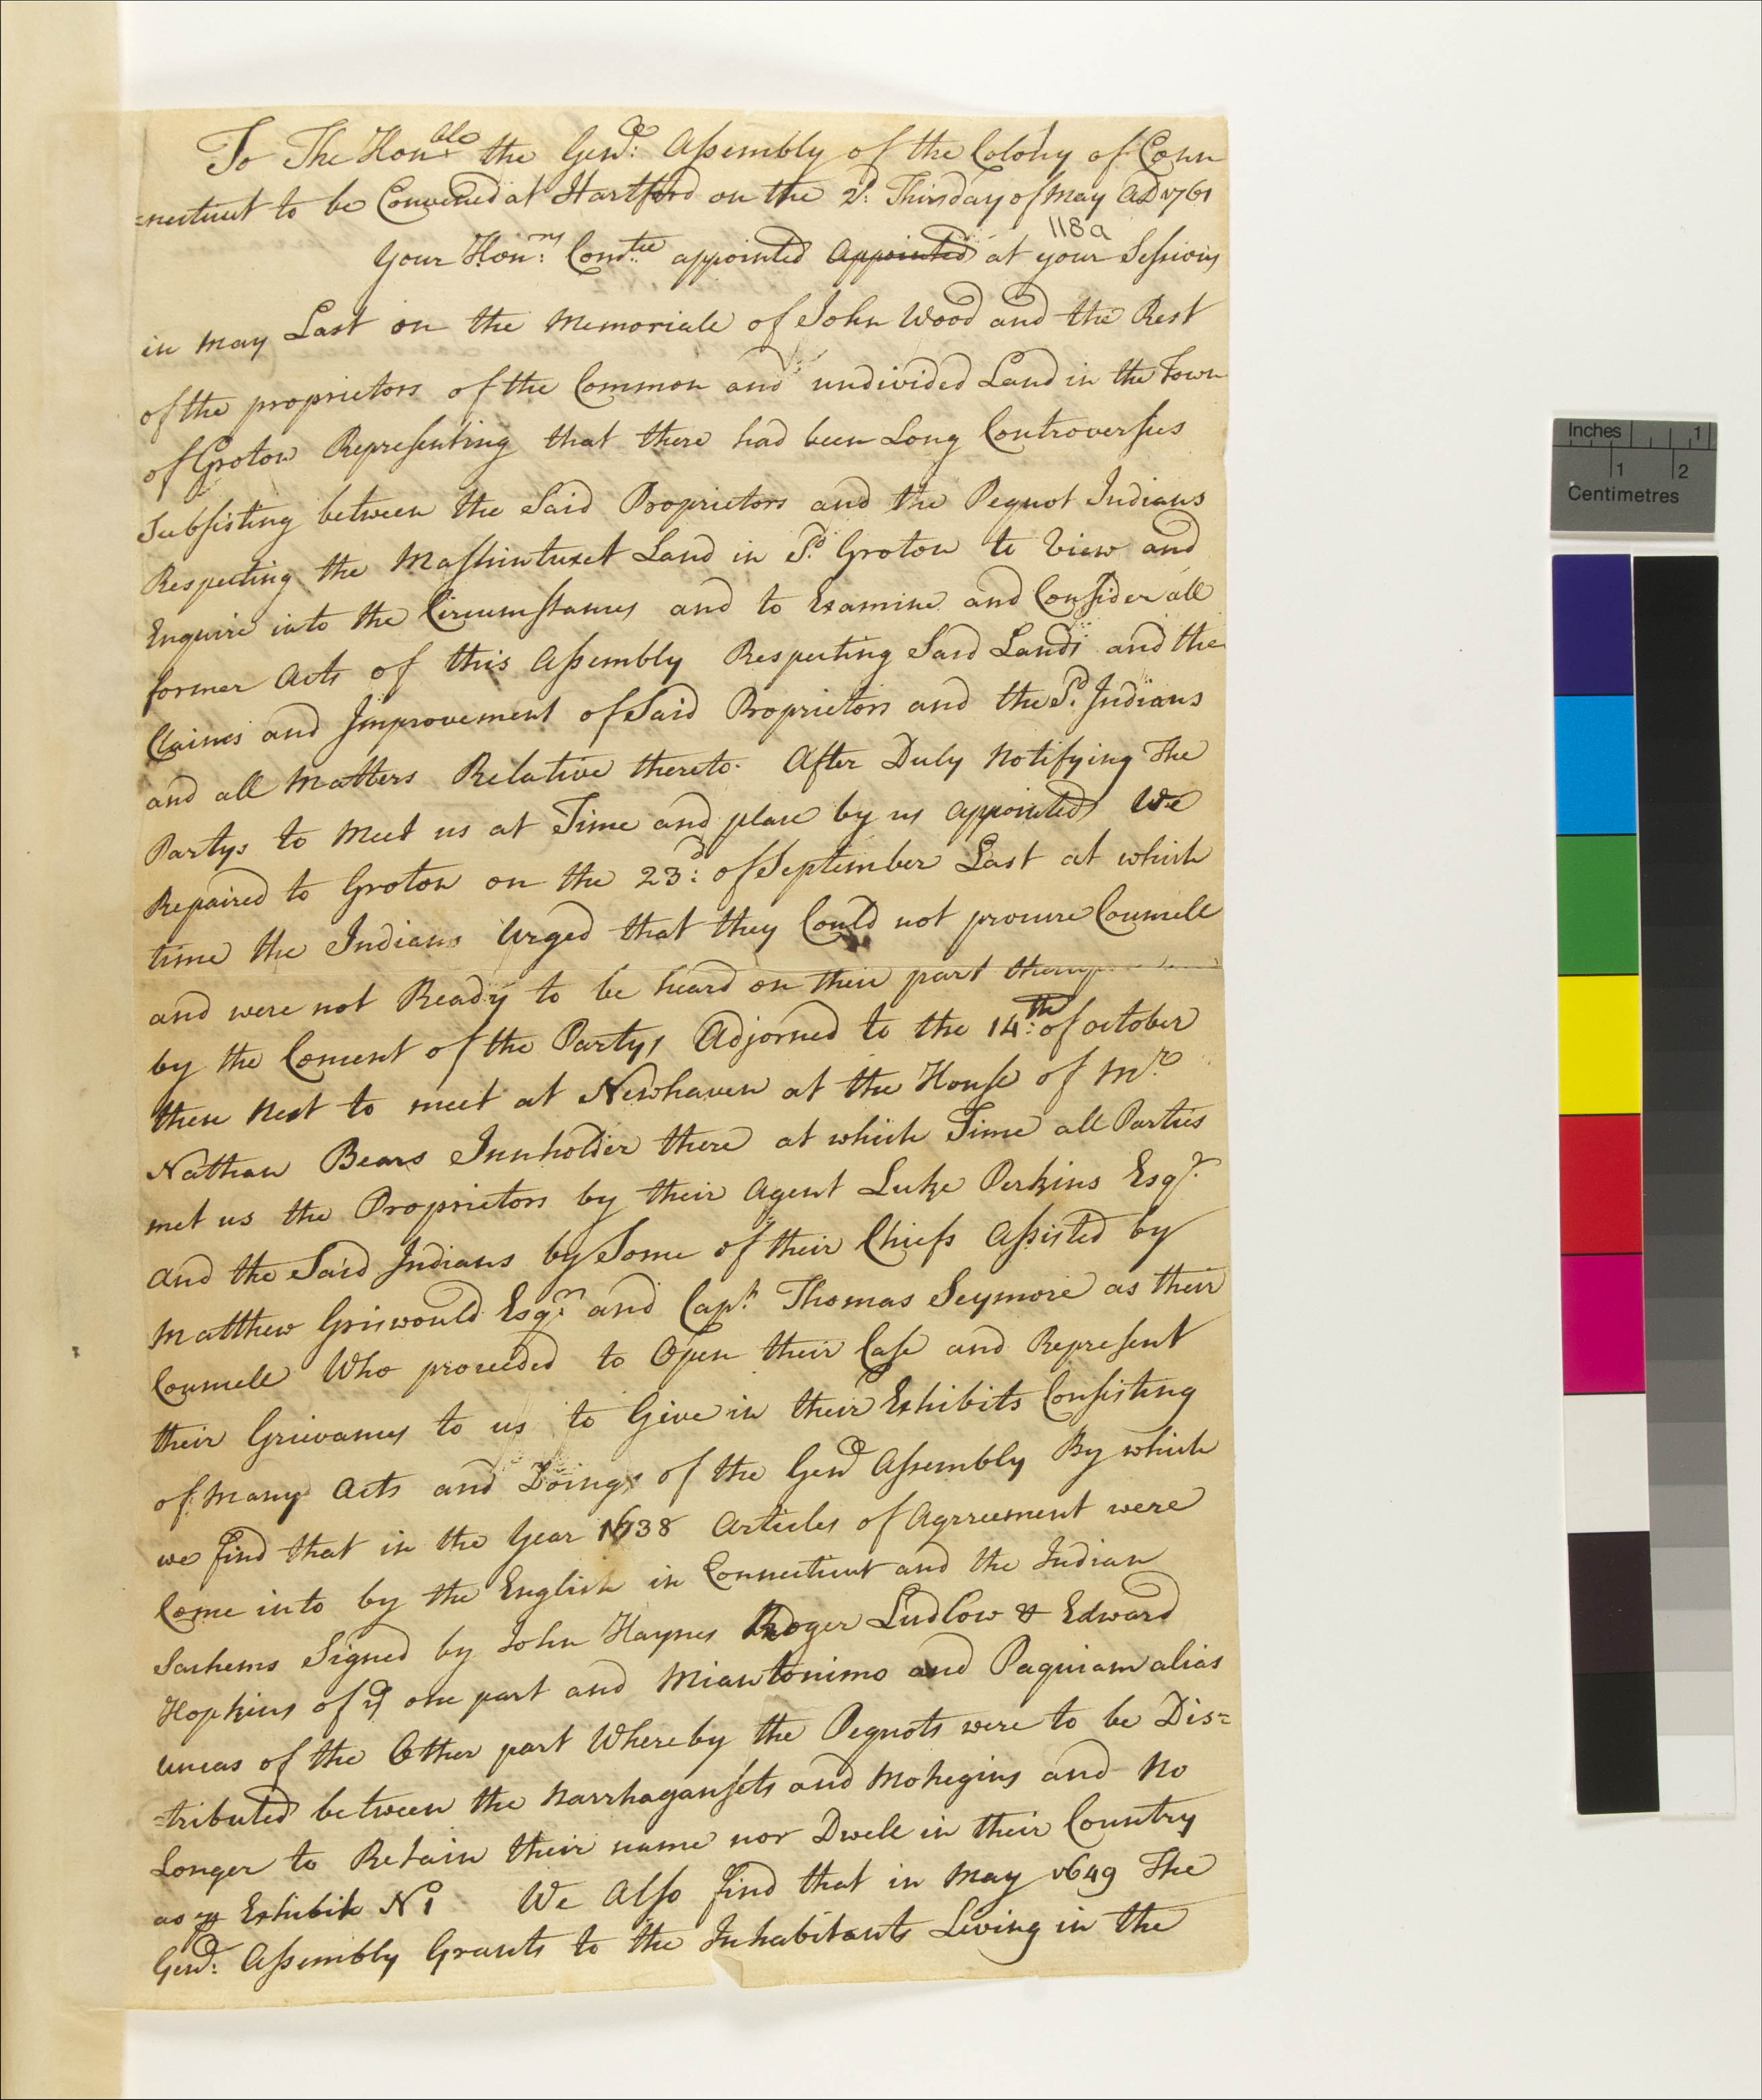 To The Honble the Genll: Assembly of the Colony of Conn
=necticut to be Convened at Hartford on the 2d: Thirsday of May AD 1761
118a
Your Honrs: Comtee appointed appointed at your Sessions
in May Last on the Memoriale of John Wood and the Rest
of the proprietors of the Common and undivided Land in the Town
of Groton Representing that there had been Long Controversies
Subsisting between the Said Proprietors and the Pequot Indians
Respecting the Mashintuxet Land in Sd. Groton to View and
Enquire into the Circumstances and to Examine and Consider all
former Acts of this Assembly Respecting Said Lands and the
Claims and Improvement of Said Proprietors and the Sd. Indians
and all Matters Relative thereto. After Duly Notifying The
Partys to Meet us at Time and place by us appointed We
Repaired to Groton on the 23d: of September Last at which
time the Indians Urged that they Could not procure Councill
and were not Ready to be heard on their part
by the Consent of the Partys Adjorned to the 14th: of october
then Next to meet at Newhaven at the House of Mr.
Nathan Bears Innholder there at which Time all Parties
met us the Proprietors by their Agent Luke Perkins Esqr.
and the Said Indians by Some of their Chiefs Assisted by
Matthew Griswould Esqr. and Capt. Thomas Seymore as their
Councill Who proceeded to Open their Case and Represent
their Grievances to us to Give in their Exhibits Consisting
of Many Acts and Doings of the Genll Assembly By which
we find that in the Year 1638 Articles of Agreement were
Come into by the English in Connecticut and the Indian
Sachems Signed by John Haynes Roger Ludlow & Edward
Hopkins of ye one part and Miantonimo and Paquiam alias
Uncas of the Other part Whereby the Pequots were to be Dis=
=tributed between the Narrhagansets and Mohegins and No
Longer to Retain their name nor Dwell in their Country
as Exhibit No 1 We Also find that in May 1649 The
Genll: Assembly Grants to the Inhabitants Living in the
Inches 1
1 2
Centimetres